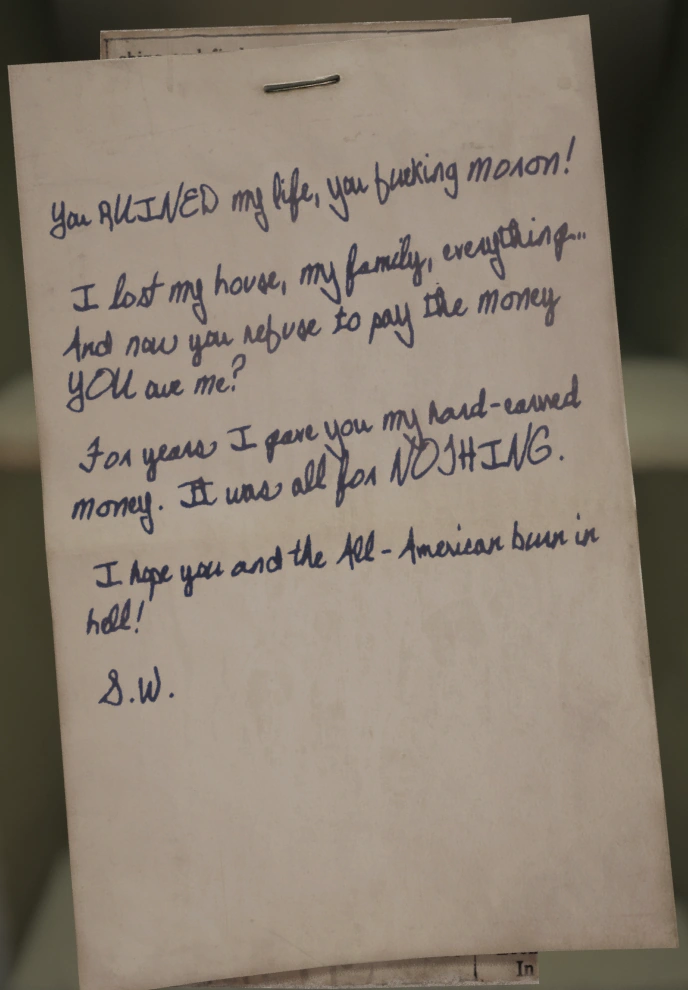 You RUINED my life, you fucking moron!
I lost my house, my family, everything...
And now you refuse to pay the money
YOU owe me?
For years I gave you my hard-earned
money. It was all for NOTHING.
I hope you and the All-American burn in
hell!
S.W.
In